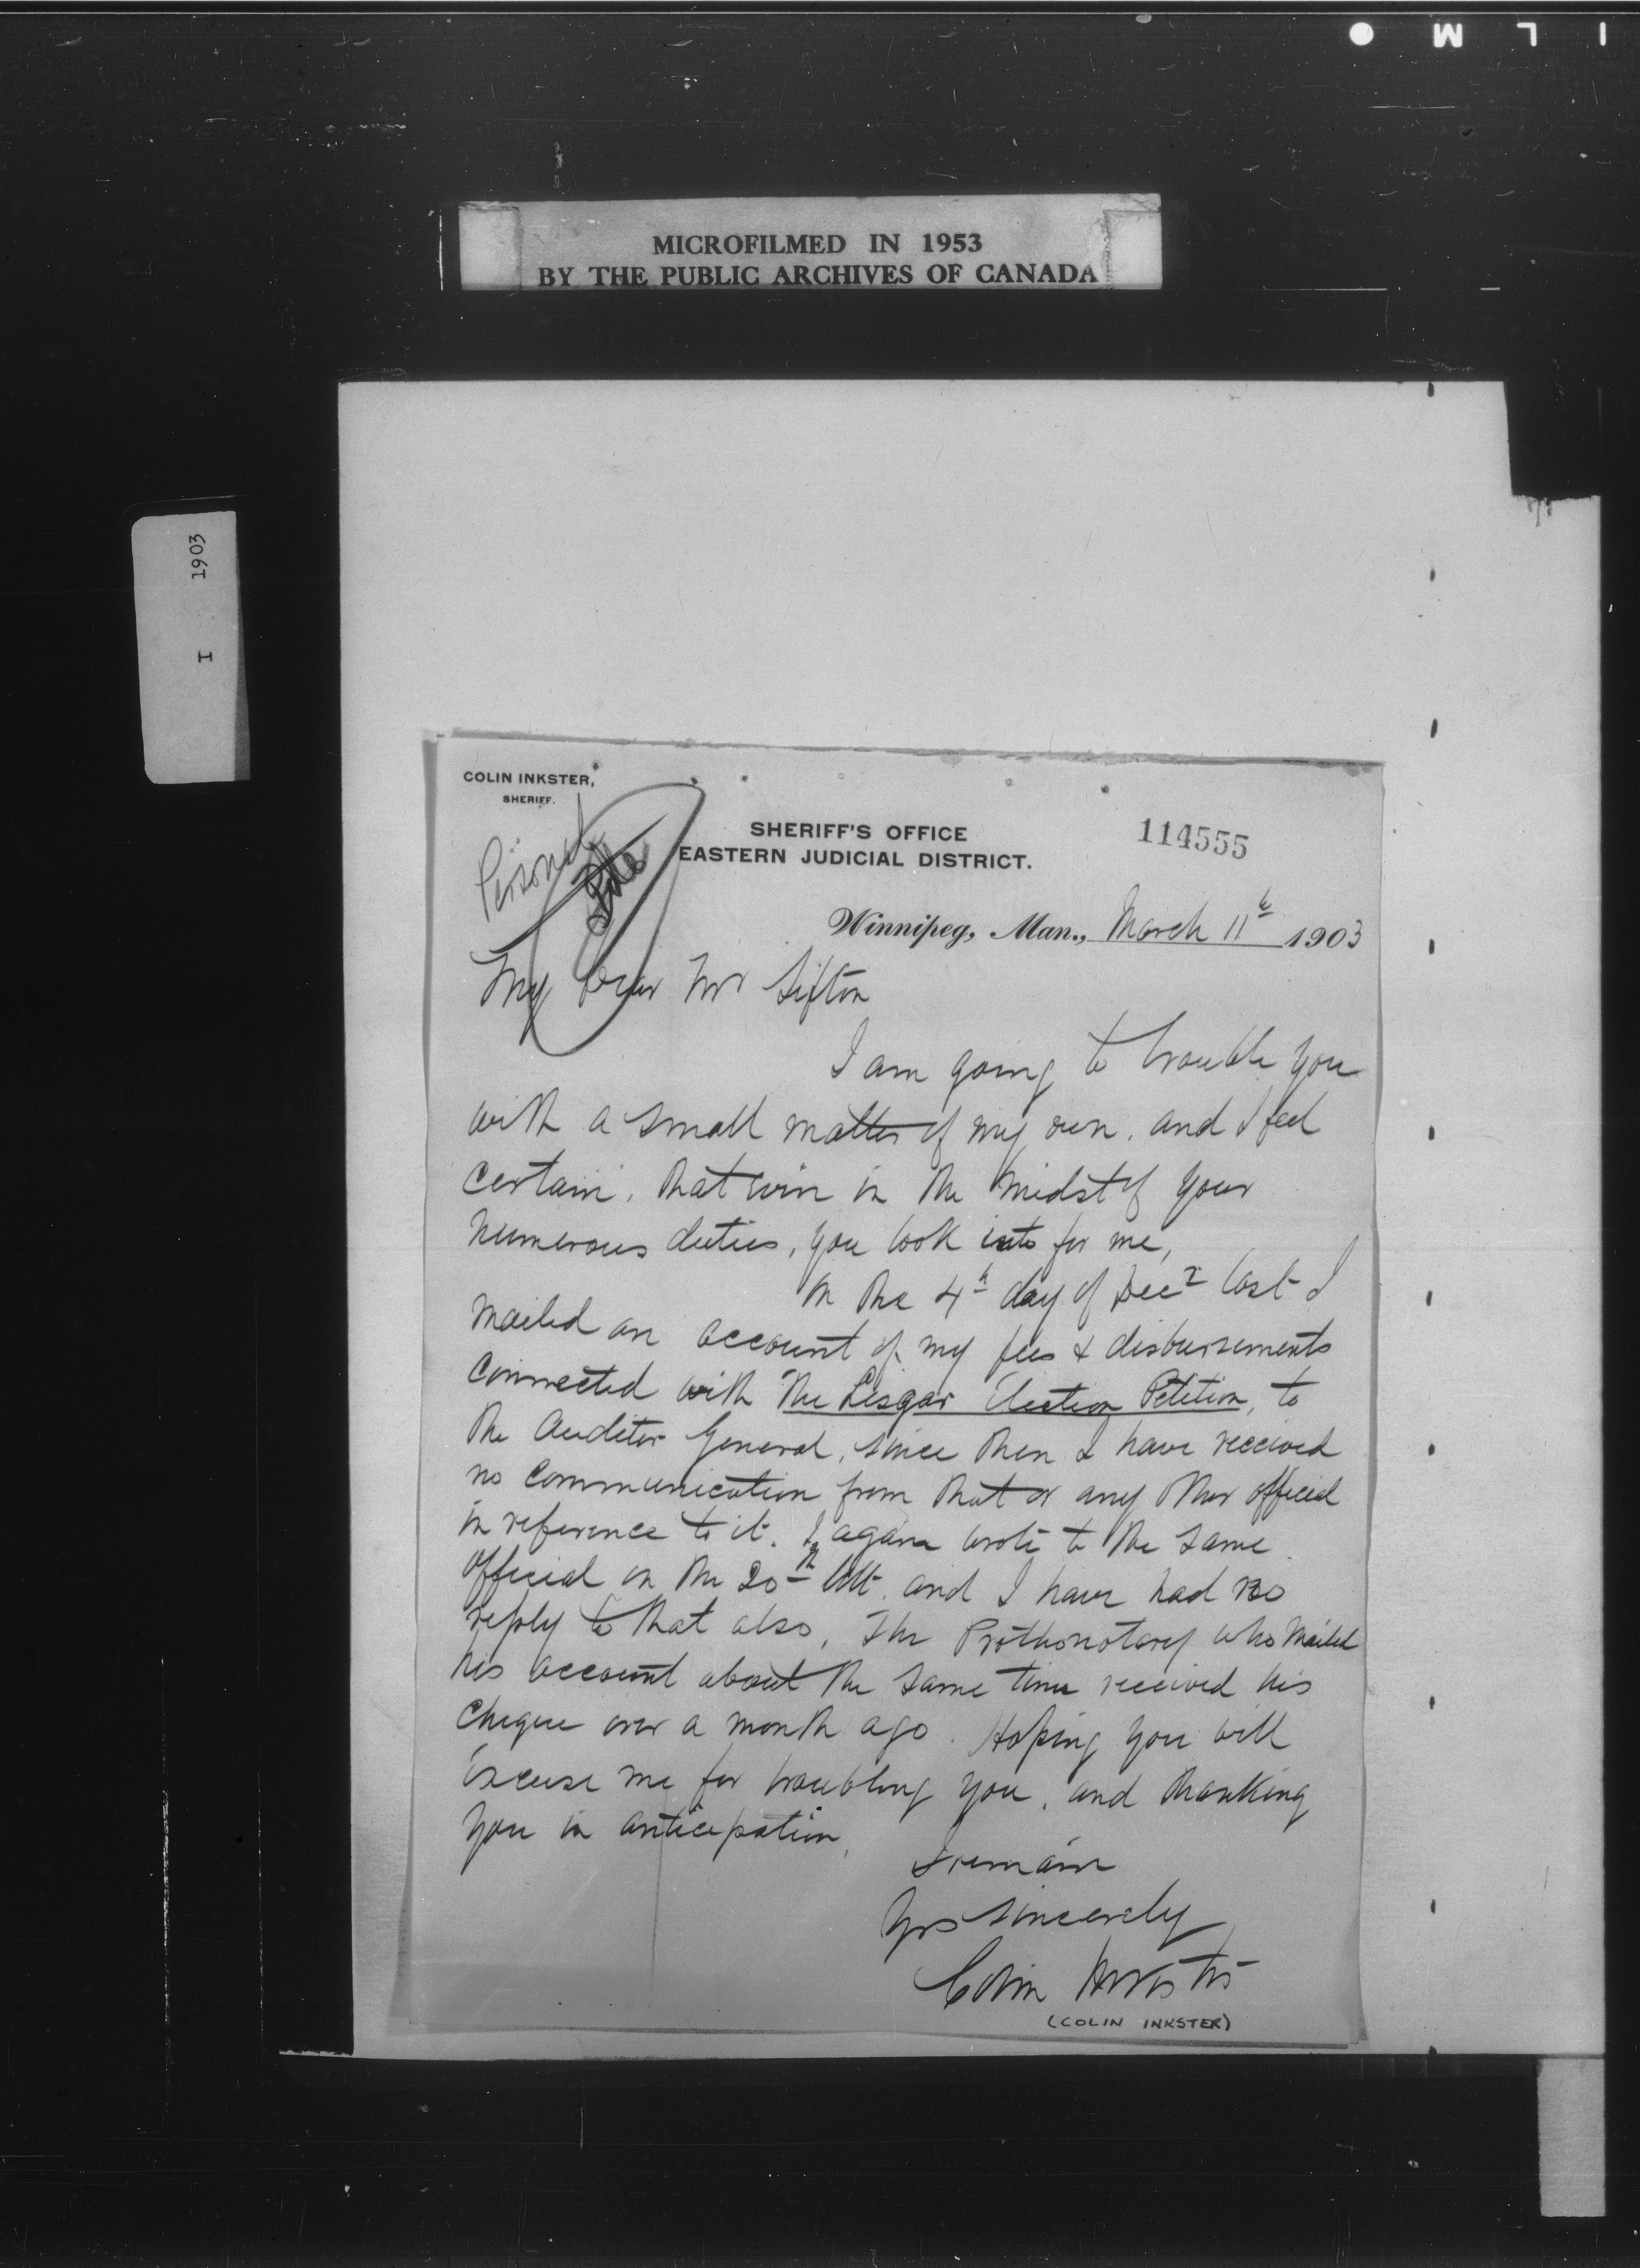 I L M
MICROFILMED IN 1953
BY THE PUBLIC ARCHIVES OF CANADA
I 1903
COLIN INKSTER,
SHERIFF.
SHERIFF'S OFFICE
EASTERN JUDICIAL DISTRICT.
114555
Personal
File
Winnipeg, Man., March 11th 1903
My Dear Mr Sifton
I am going to trouble you
with a small matter of my own, and I feel
certain, that even in the midst of your
numerous duties, you look into for me,
On the 4th day of Decr last I
mailed an account of my fees & disbursements
connected with The Lisgar Election Petition, to
the Auditor General, since then I have received
no communication from that or any other official
in reference to it. I again wrote to the same
official on the 20th Ult. and I have had no
reply to that also, The Prothonotary who mailed
his account about the same time received his
cheque over a month ago. Hoping you will
excuse me for troubling you, and thanking
you in anticipation,
I remain
Yrs sincerely
Colin Inkster
(COLIN INKSTER)